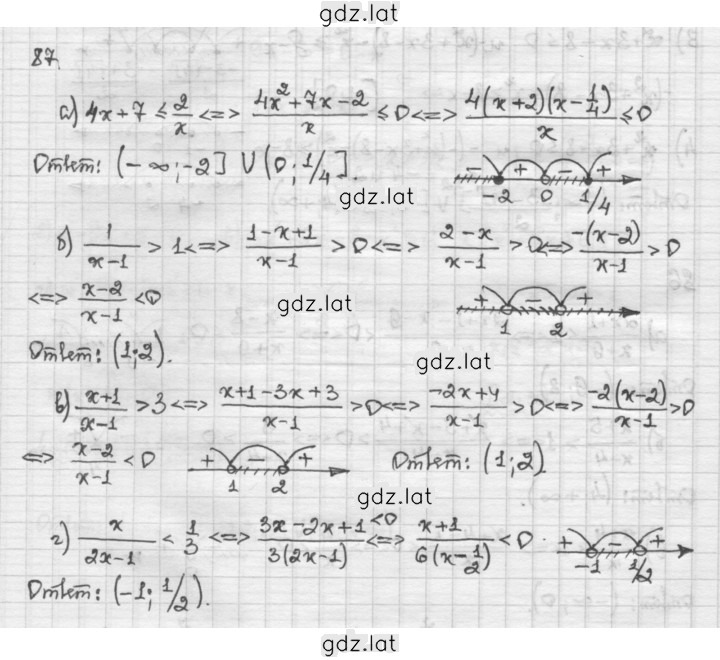 gdz.lat
87.
а) 4x+7 ≤ 2/x <=> (4x²+7x-2)/x ≤ 0 <=> 4(x+2)(x-1/4)/x ≤ 0
Ответ: (-∞;-2] ∪ (0; 1/4].
- + - +
-2 0 1/4
gdz.lat
б) 1/(x-1) > 1 <=> (1-x+1)/(x-1) > 0 <=> (2-x)/(x-1) > 0 <=> -(x-2)/(x-1) > 0
<=> (x-2)/(x-1) < 0
gdz.lat
+ - +
1 2
Ответ: (1;2).
gdz.lat
в) (x+1)/(x-1) > 3 <=> (x+1-3x+3)/(x-1) > 0 <=> (-2x+4)/(x-1) > 0 <=> -2(x-2)/(x-1) > 0
<=> (x-2)/(x-1) < 0
+ - +
1 2
Ответ: (1;2).
gdz.lat
г) x/(2x-1) < 1/3 <=> (3x-2x+1)/3(2x-1) < 0 <=> (x+1)/6(x-1/2) < 0.
+ - +
-1 1/2
Ответ: (-1; 1/2).
gdz.lat